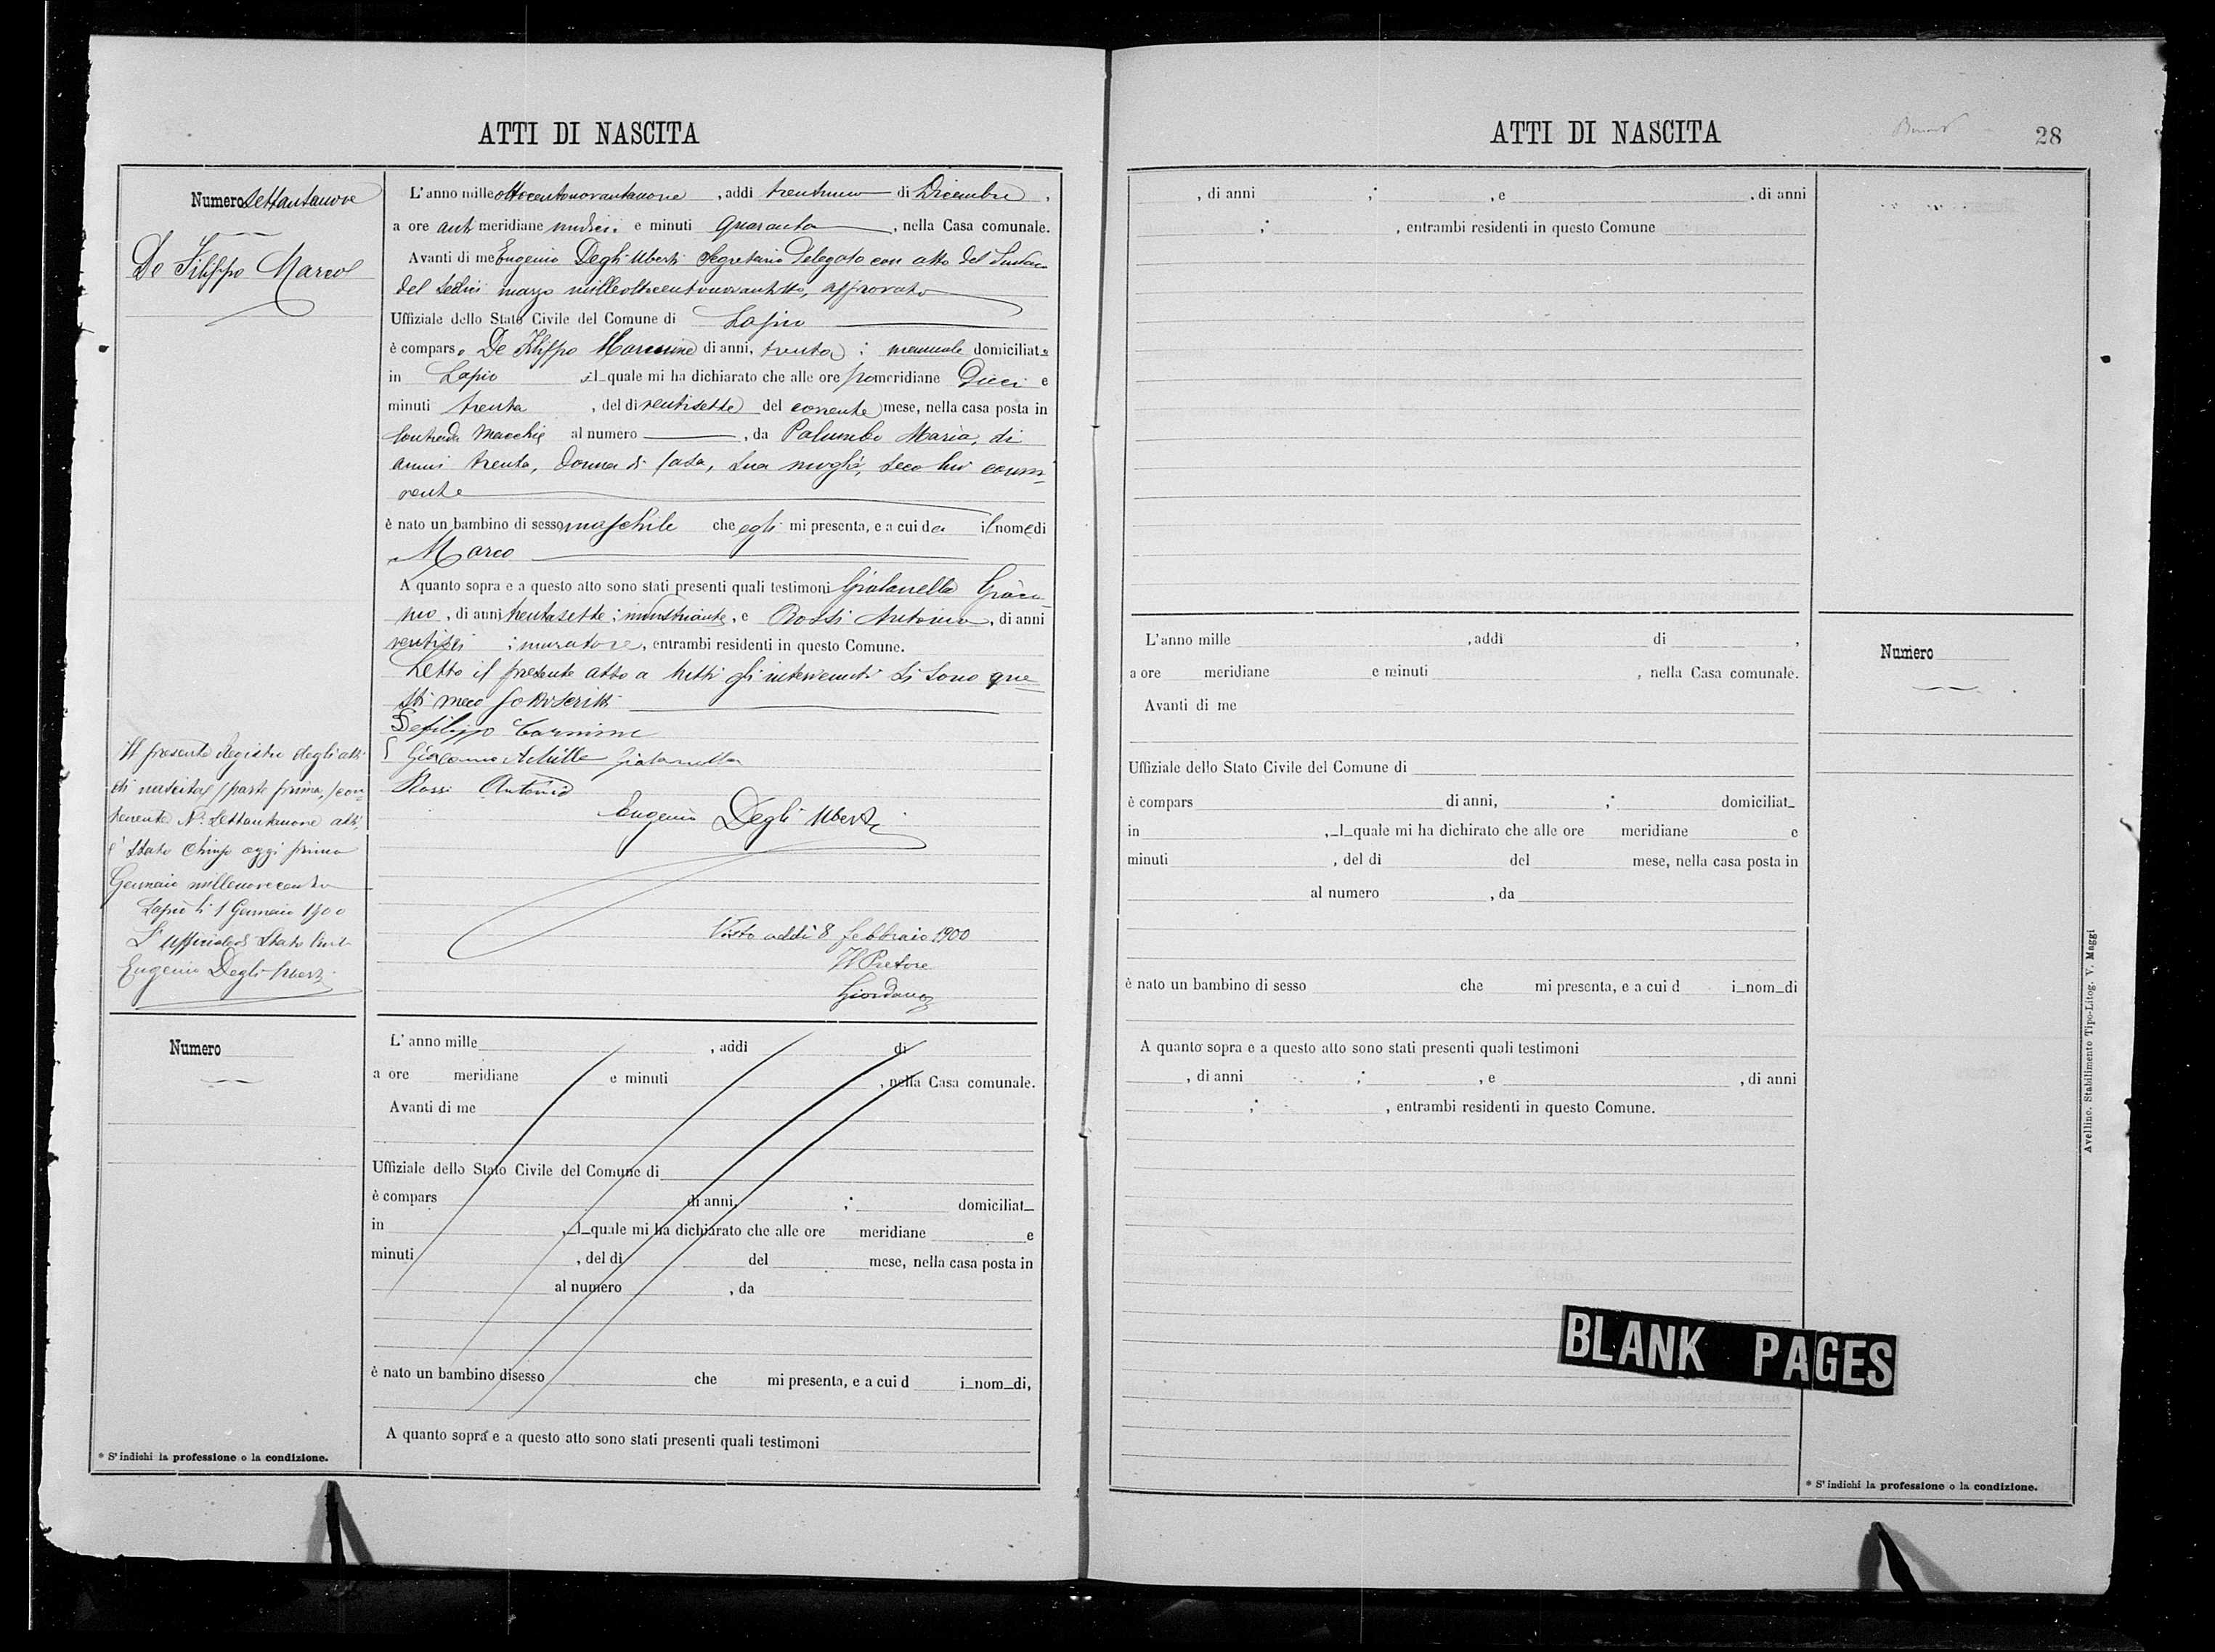 ATTI DI NASCITA
Numero settantanove
De Filippo Marco
L'anno mille ottocentonovantanove, addì trentuno di Dicembre,
a ore anti meridiane undici e minuti quaranta, nella Casa comunale.
Avanti di me Eugenio Degli Uberti Segretario Delegato con atto del Sindaco
del sedici marzo milleottocentonovantotto, approvato
Uffiziale dello Stato Civile del Comune di Lapio
è comparso De Filippo Carmine di anni, trenta; manuale domiciliato
in Lapio il quale mi ha dichiarato che alle ore pomeridiane dieci e
minuti trenta, del dì ventisette del corrente mese, nella casa posta in
Contrada Macchie al numero, da Palumbo Maria, di
anni trenta, donna di casa, sua moglie, seco lui convi-
vente
è nato un bambino di sesso maschile che egli mi presenta, e a cui da il nome di
Marco
A quanto sopra e a questo atto sono stati presenti quali testimoni Giatanella Giaco-
mo, di anni trentasette; industriante, e Rossi Antonio, di anni
ventisei; muratore, entrambi residenti in questo Comune.
Letto il presente atto a tutti gli intervenuti si sono que-
sti meco sottoscritti
Defilippo Carmine
Giacomo Achille Giatanella
Rossi Antonio
Eugenio Degli Uberti
Visto addì 8 febbraio 1900
Il Pretore
Giordano
Il presente Registro degli atti
di nascita, (parte prima,) con-
tenente N: settantanove atti,
è stato chiuso oggi primo
Gennaio millenovecento
Lapio li 1 Gennaio 1900
L'Ufficiale di Stato Civile
Eugenio Degli Uberti
Numero
L'anno mille, addì di
a ore meridiane e minuti, nella Casa comunale.
Avanti di me
Uffiziale dello Stato Civile del Comune di
è compars di anni, ; domiciliat_
in , _l_quale mi ha dichiarato che alle ore meridiane e
minuti , del dì del mese, nella casa posta in
al numero , da
è nato un bambino di sesso che mi presenta, e a cui d i_nom_di,
A quanto sopra e a questo atto sono stati presenti quali testimoni
* S'indichi la professione o la condizione.
ATTI DI NASCITA
28
, di anni ; , e , di anni
; , entrambi residenti in questo Comune
L'anno mille , addì di ,
a ore meridiane e minuti , nella Casa comunale.
Avanti di me
Uffiziale dello Stato Civile del Comune di
è compars di anni, ; domiciliat_
in , _l_quale mi ha dichirato che alle ore meridiane e
minuti , del dì del mese, nella casa posta in
al numero , da
è nato un bambino di sesso che mi presenta, e a cui d i_nom_di
A quanto sopra e a questo atto sono stati presenti quali testimoni
, di anni ; , e , di anni
; , entrambi residenti in questo Comune.
Numero
BLANK PAGES
* S'indichi la professione o la condizione.
Avellino. Stabilimento Tipo-Litog. V. Maggi